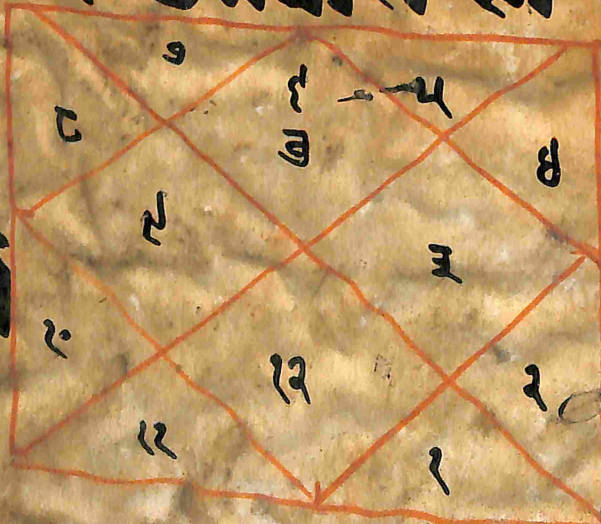 ७ ६ ५
८ ४
९ ३
१०
१२ २
११ १